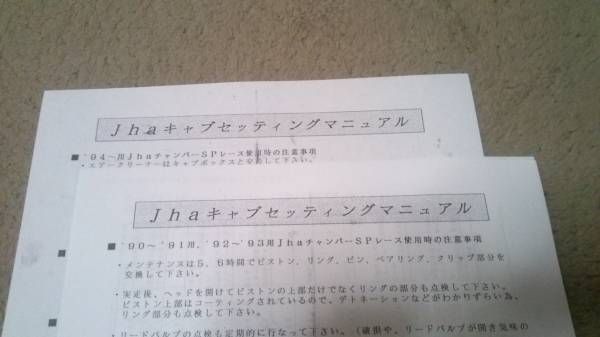 Jhaキャブセッティングマニュアル
■ '94～用JhaチャンバーSPレース使用時の注意事項
・エアークリーナーはキャブボックスと交換して下さい。
Jhaキャブセッティングマニュアル
■ '90～'91用、'92～'93用JhaチャンバーSPレース使用時の注意事項
・メンテナンスは5、6時間でピストン、リング、ピン、ベアリング、クリップ部分を
交換して下さい。
・実走後、ヘッドを開けてピストンの上部だけでなくリングの部分も点検して下さい。
ピストン上部はコーティングされているので、デトネーションなどがわかりずらい為、
リング部分も点検して下さい。
・リードバルブの点検も定期的に行なって下さい。（破損や、リードバルブが開き気味の